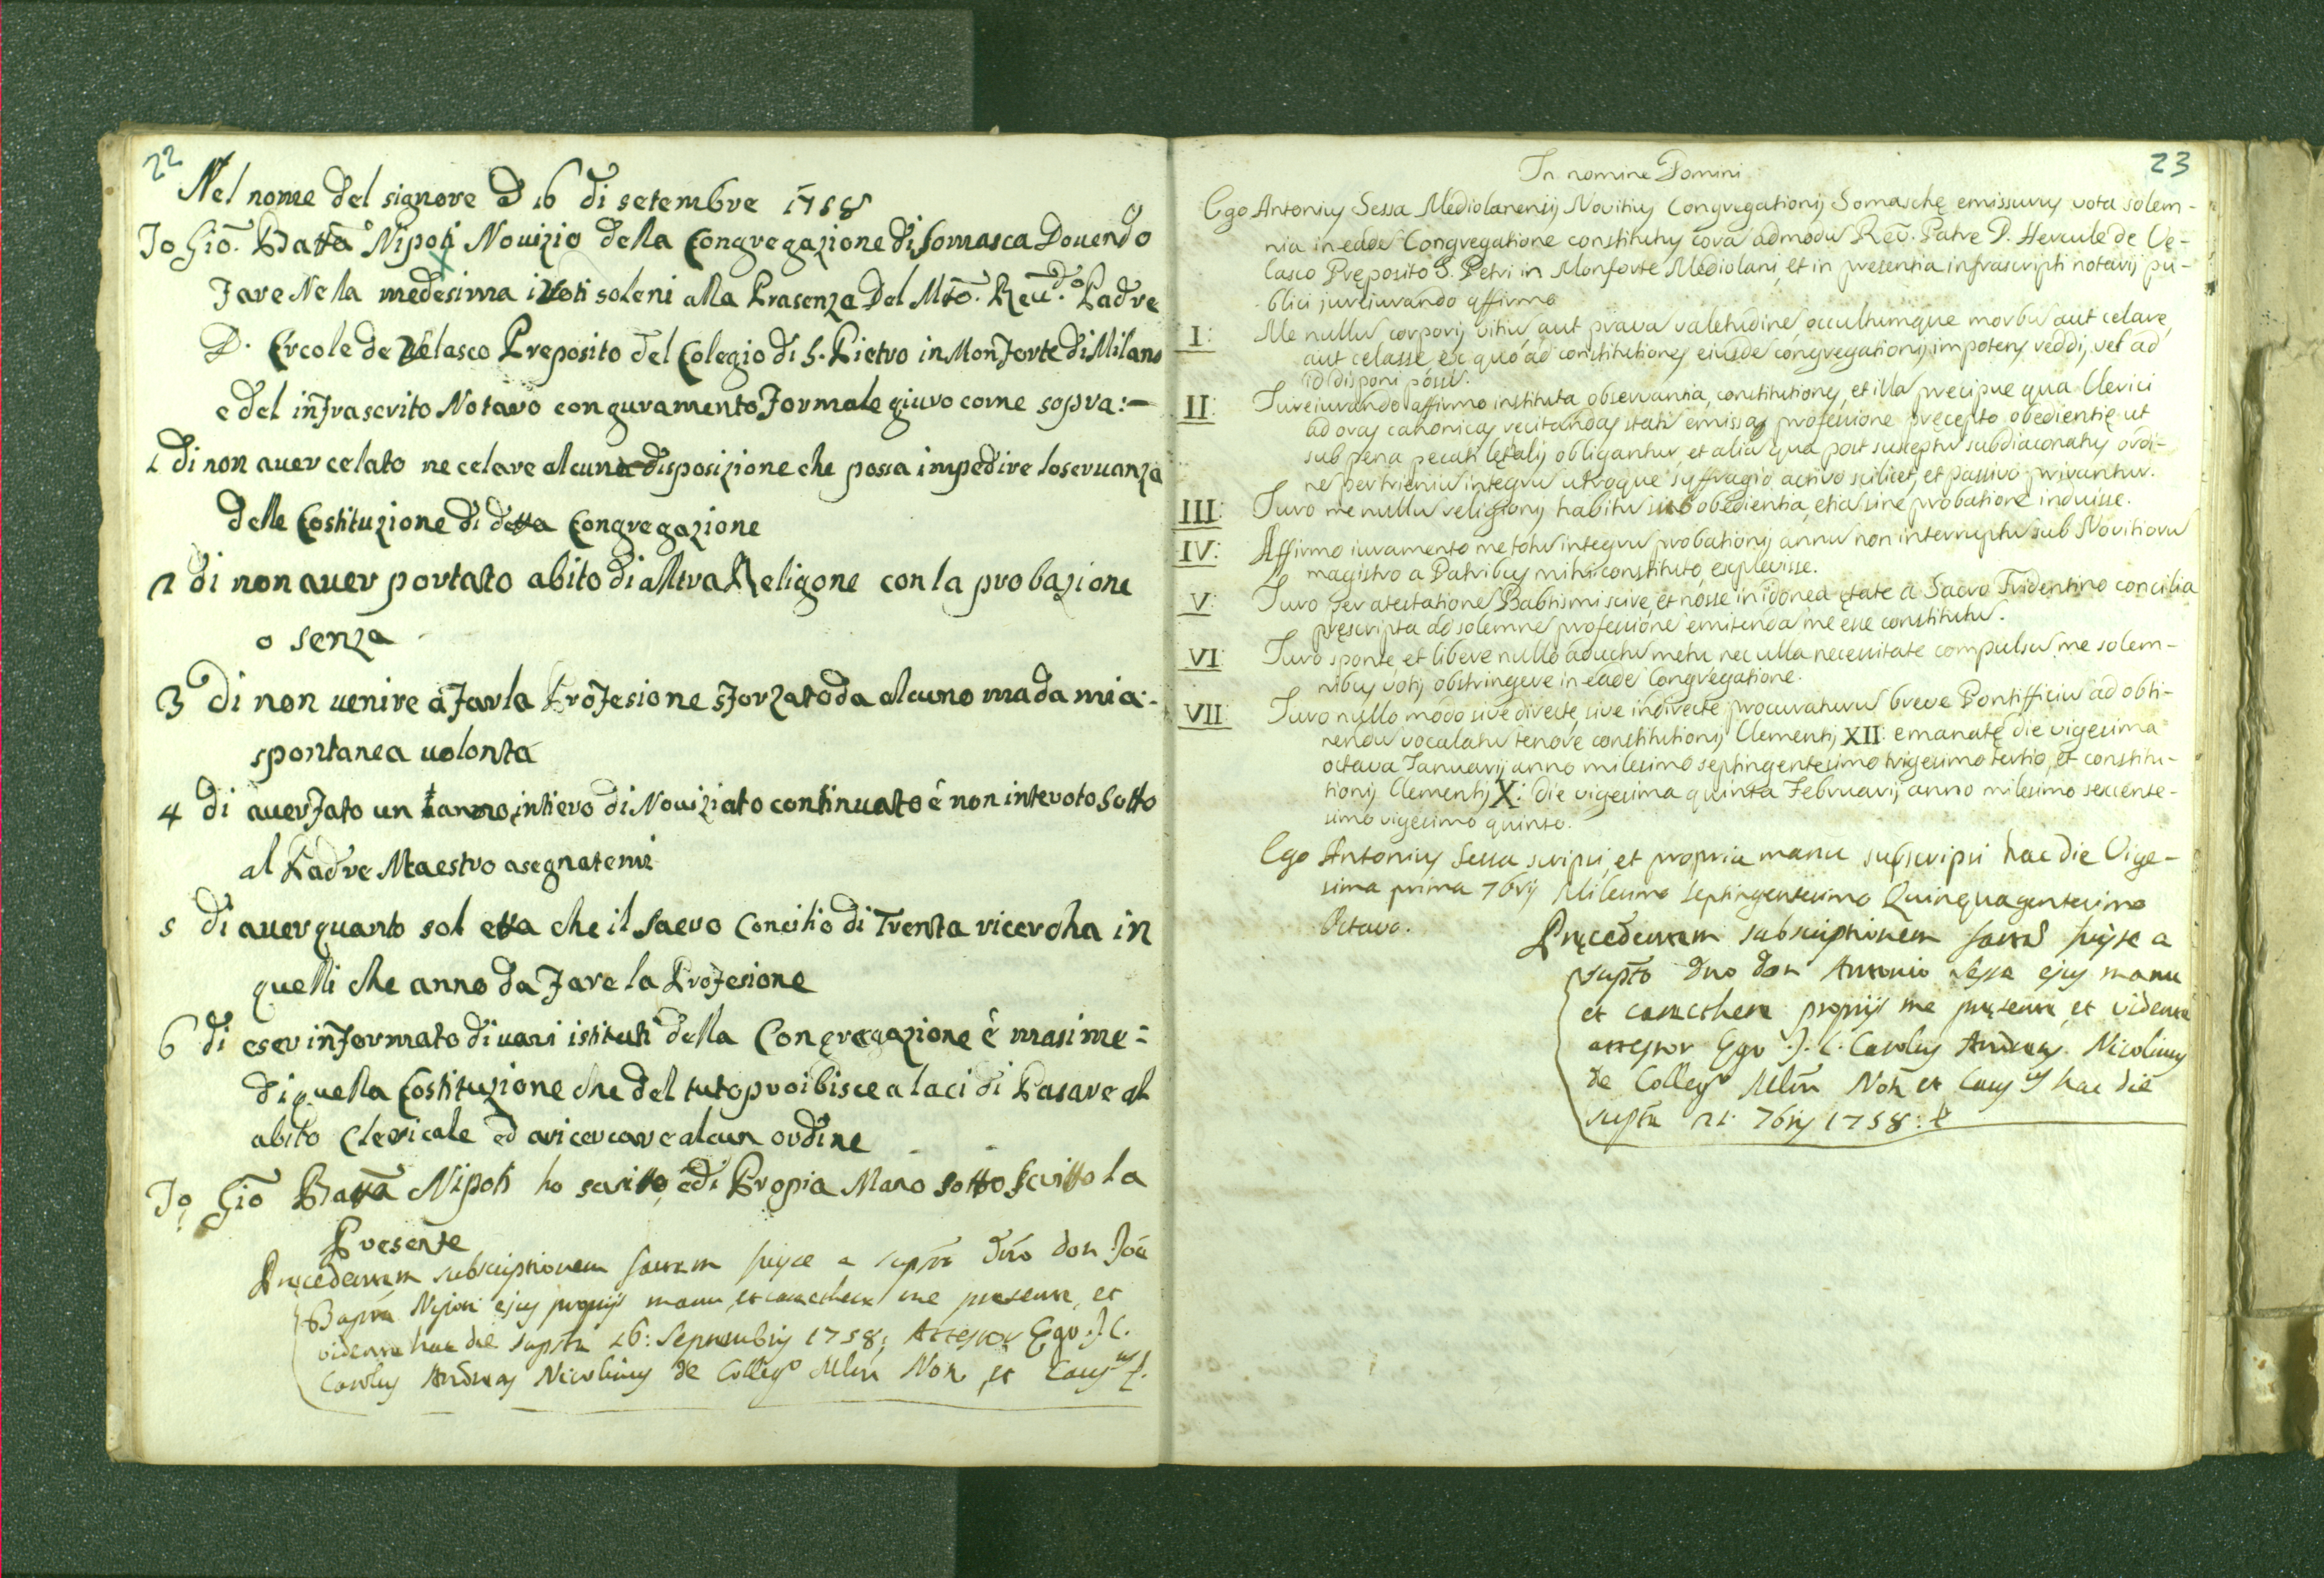 22
Nel nome del signore a 16 di setembre 1758
Io Gio. Batta Nipoti Novizio della Congregazione di somasca Dovendo
fare Nela medesima i Voti soleni alla Prasenza Del Mto. Reu.do Padre
D. Ercole de Velasco Preposito del Colegio di S. Pietro in Monforte di Milano
e del infrascrito Notaro con guramento formale giuro come sopra:-
1 di non auer celato ne celare alcuna disposizione che possa impedire loseruanza
delle Costituzione di detta Congregazione
2 di non auer portato abito di altra Religone con la probazione
o senza
3 di non uenire a farla Profesione sforzato da alcuno ma da mia:
spontanea uolonta
4 di auer fato un anno intiero di Nouiziato continuato é non interoto Sotto
al Padre Maestro asegnatemi
5 di auer quanto sol etta che il Sacro Concilio di Trenta ricercha in
quelli che anno da fare la Profesione
6 di eser informato di uari istituti della Congregazione é masime=
di quella Costituzione che del tuto proibisce a laci di Pasare al
abito Clericale ed a ricercare alcun ordine
Io Gio Batta Nipoti ho scritto, e di Propia Mano sotto Scritto la
Presente
Pręcedentem subscriptionem factam fuisse a supto Dno don Joe
Bapta Nipoti ejus proprijs manu, et caracthere me presente, et
vidente hac die supta 16: Septembris 1758; Attestor Ego J. C.
Carolus Andreas Nicolinus de Collego Mlni Not. et Caus.us
23
In nomine Domini
Ego Antonius Sessa Mediolanensis Novitius Congregationis Somaschę emissurus vota solem-
nia in eade Congregatione constitutus cora admodu Reu. Patre D. Hercule de Ve-
lasco Pręposito S. Petri in Monforte Mediolani, et in presentia infrascripti notarij pu-
blici jureiurando affirmo
I: Me nullu corporis vitiu, aut prava valetudine, occultumque morbu aut celare,
aut celasse ex quo ad constitutiones eiusde congregationis impotens reddi, vel ad
id disponi possi.
II: Jureiurando affirmo instituta observantia, constitutiones, et illa precipue qua Clerici
ad oras canonicas recitandas stati emissa professione pręcepto obedientię ut
sub pena pecati letalis obligantur, et alia qua post susceptu subdiaconatus ordi-
ne per trieniu integru utroque suffragio activo scilicet, et passivo privantur.
III: Juro me nullu religionis habitu sub obedientia, etia sine probatione induisse.
IV: Affirmo iuramento me totu integru probationis annu non interruptu sub Novitioru
magistro a Patribus mihi constituto, explevisse.
V: Juro per atestatione Babtismi scire, et nosse in idonea ętate a Sacro Tridentino concilia
pręscripta ad solemne professione emitenda me esse constitutu.
VI: Juro sponte, et libere nullo aductu metu nec ulla necessitate compulsu me solem-
nibus votis obstringere in eade Congregatione.
VII: Juro nullo modo sive directe, sive indirecte procuraturu breve Pontifficiu ad obti-
nendu vocalatu tenore constitutionis Clementis XII: emanatę die vigesima
octava Januarij anno milesimo septingentesimo trigesimo tertio, et constitu-
tionis Clementis X: die vigesima quinta Februarij anno milesimo sexcense-
simo vigesimo quinto.
Ego Antonius Sessa scripsi, et propria manu subscripsi hac die Vige-
sima prima 7bris Milesimo Septingentesimo Quinquagentesimo
Octavo.
Pręcedentem subscriptionem factã fuisse a
supto Dno don Antonio Sessa ejus manu
et caracthere proprijs me pręsente, et vidente
attestor Ego J. C. Carolus Andreas Nicolinus
de Collego Mlni Not. et Caus.us hac die
supta 21: 7bris 1758: